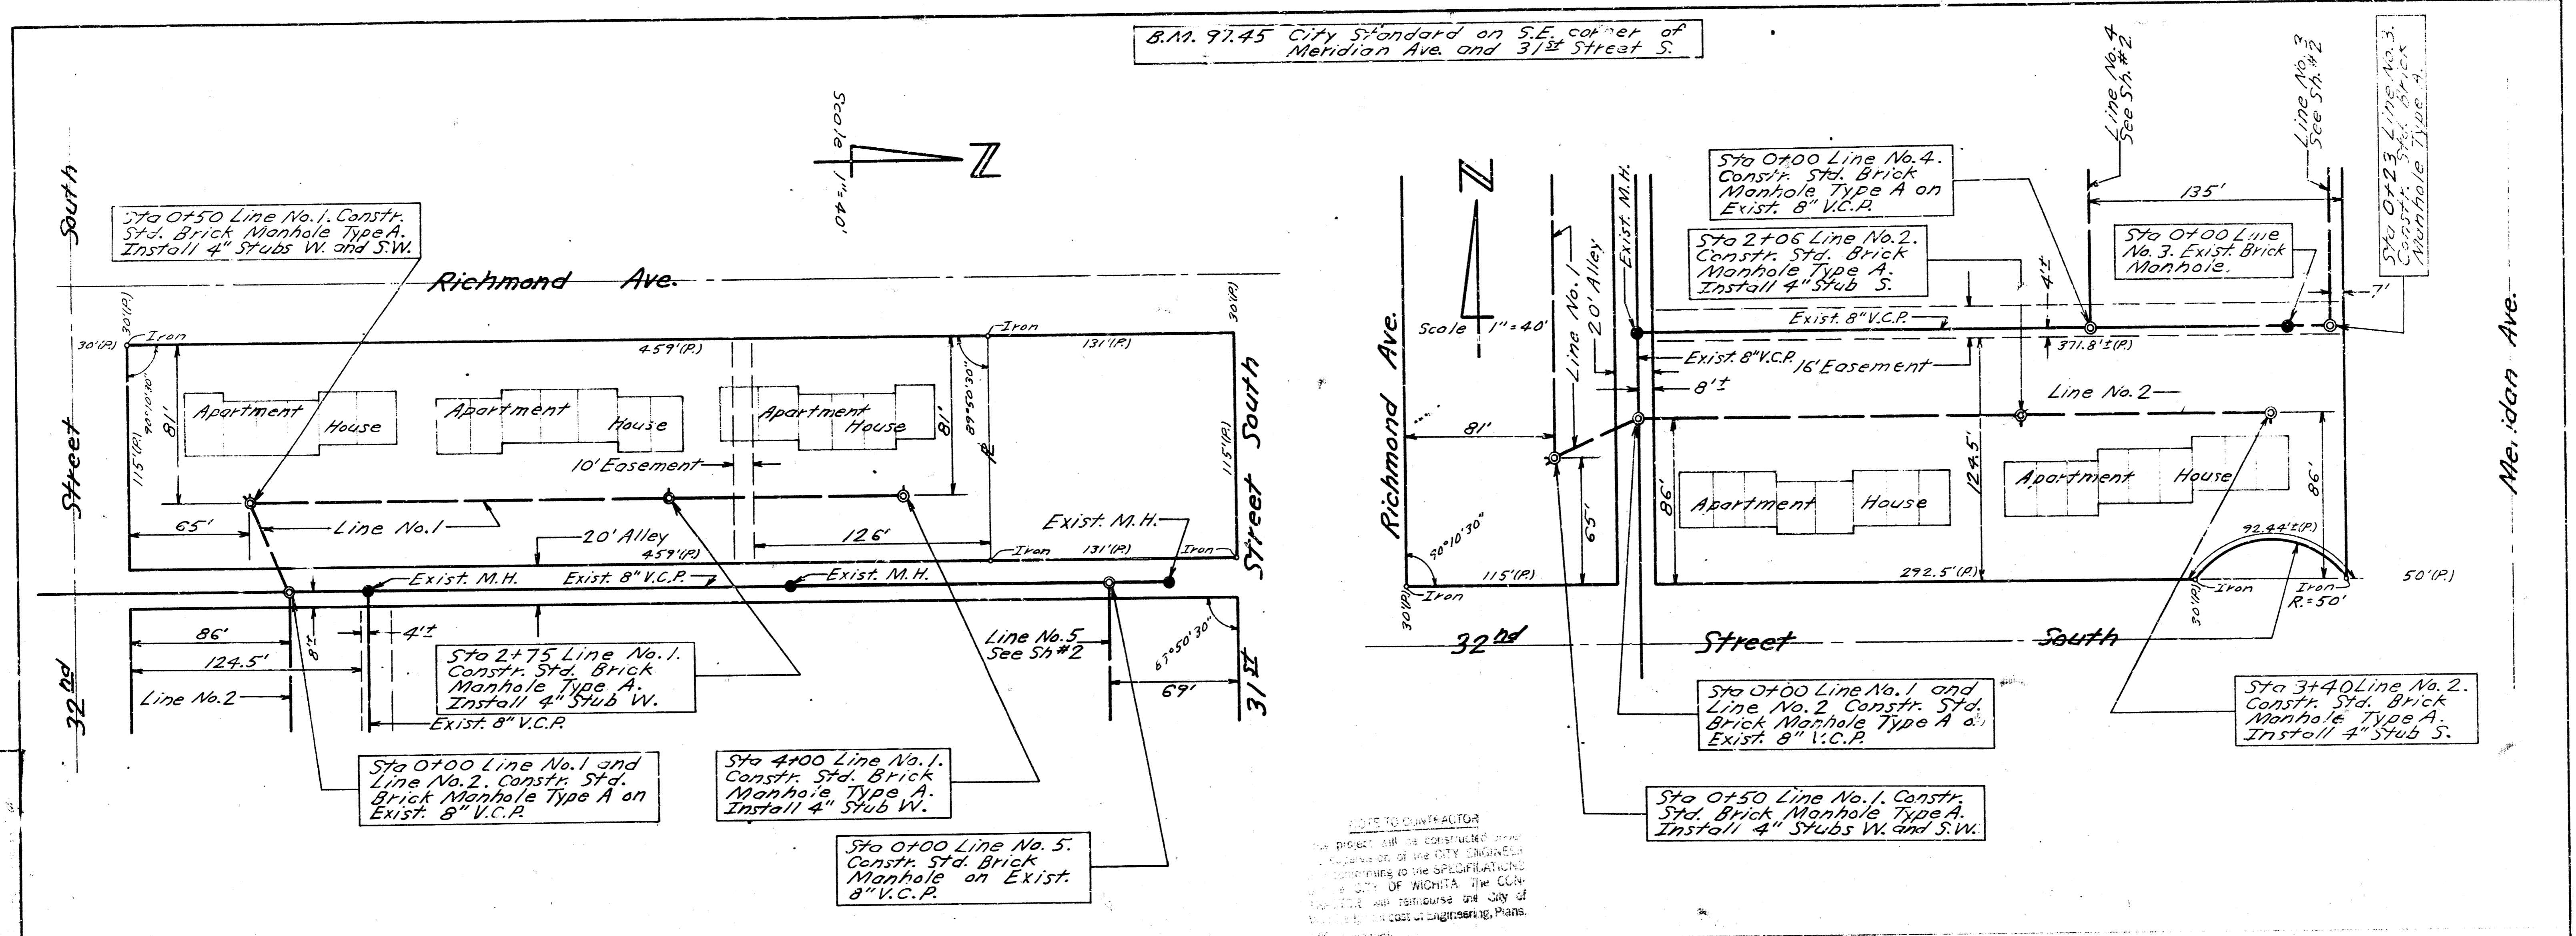 B.M. 97.45 City Standard on S.E. corner of
Meridian Ave. and 31st Street S.
Scale 1"=40'
N
Sta 0+50 Line No.1. Constr.
Std. Brick Manhole Type A.
Install 4" Stubs W. and S.W.
Richmond Ave.
32nd Street South
30'(P.)
30'(P.)
Iron
459'(P.)
Iron
131'(P.)
30'(P.)
90°10'30"
115'(P.)
81'
Apartment House
Apartment House
Apartment House
89°50'30"
81'
115'(P.)
10' Easement
65'
Line No.1
20' Alley
459'(P.)
126'
Iron
131'(P.)
Iron
Exist. M.H.
31st Street South
Exist. M.H.
Exist. 8" V.C.P.
Exist. M.H.
86'
8'±
4'±
124.5'
Line No.2
Exist. 8" V.C.P.
Line No.5
See Sh #2
69'
Sta 2+75 Line No.1.
Constr. Std. Brick
Manhole Type A.
Install 4" Stub W.
Sta 0+00 Line No.1 and
Line No.2. Constr. Std.
Brick Manhole Type A on
Exist. 8" V.C.P.
Sta 4+00 Line No.1.
Constr. Std. Brick
Manhole Type A.
Install 4" Stub W.
Sta 0+00 Line No. 5.
Constr. Std. Brick
Manhole on Exist.
8" V.C.P.
Richmond Ave.
N
Scale 1"=40'
Line No.1
20' Alley
Exist. M.H.
Sta 0+00 Line No.4.
Constr. Std. Brick
Manhole Type A on
Exist. 8" V.C.P.
Sta 2+06 Line No.2.
Constr. Std. Brick
Manhole Type A.
Install 4" Stub S.
Line No.4
See Sh.#2
Line No.3
See Sh.#2
Sta 0+23 Line No.3.
Constr. Std. Brick
Manhole Type A.
135'
Sta 0+00 Line
No.3. Exist. Brick
Manhole.
7'
4'±
Exist. 8" V.C.P.
371.8'±(P.)
Exist. 8" V.C.P.
16' Easement
8'±
Line No.2
81'
86'
65'
124.5'
Apartment House
Apartment House
86'
92.44'±(P.)
90°10'30"
115'(P.)
292.5'(P.)
Iron
30'(P.)
Iron
30'(P.)
Iron
R.=50'
50'(P.)
32nd Street South
Meridan Ave.
Sta 0+00 Line No.1 and
Line No.2 Constr. Std.
Brick Manhole Type A
Exist. 8" V.C.P.
Sta 3+40 Line No. 2.
Constr. Std. Brick
Manhole Type A.
Install 4" Stub S.
Sta 0+50 Line No.1. Constr.
Std. Brick Manhole Type A.
Install 4" Stubs W. and S.W.
NOTE TO CONTRACTOR
project will be constructed
of the CITY ENGINEER
conforming to the SPECIFICATIONS
CITY OF WICHITA. The CON-
will reimburse the City of
cost of Engineering, Plans,